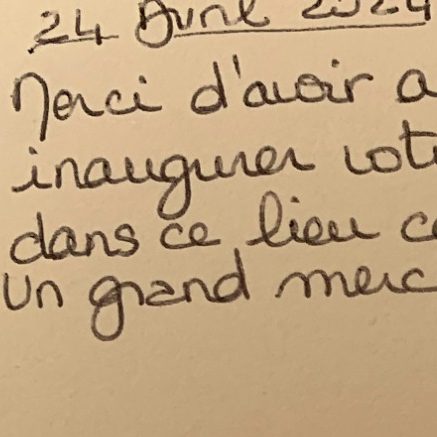 24 Avril 2024
Merci d'avoir a
inaugurer vot
dans ce lieu c
Un grand merc